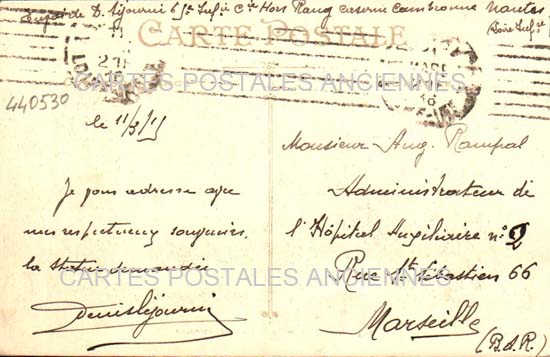 de D. Séjourné 65e Inf. Cie Hors Rang caserne Cambronne Nantes
(Loire Infre)
CARTE POSTALE
CARTES POSTALES ANCIENNES
440530
le 11/3/15
Monsieur Aug. Rampal
Administrateur de
l'Hôpital Auxiliaire n° 2
Rue St Sébastien 66
Marseille
(B.d.R.)
Je vous adresse avec
mes respectueux souvenirs
la
CARTES POSTALES ANCIENNES
Denis Séjourné